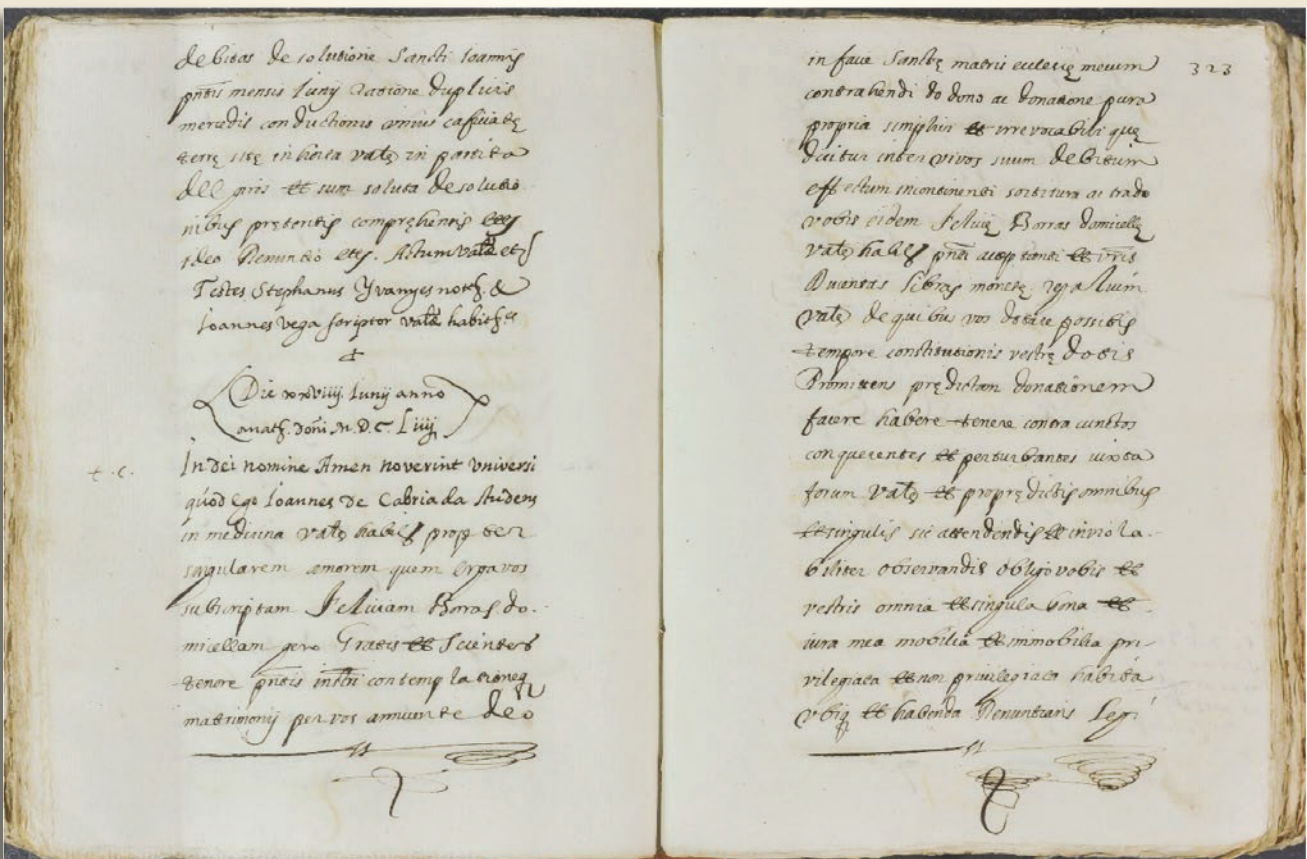 debitas de solutione Sancti Ioannis
pñtis mensis Iunij Ratione duplicis
mercedis conductionis unius caficiatę
terrę sitę in horta valę in partita
del gros et sum soluta de solutio
nibus pręteritis compręhentis etcȩ
ideo Renuntio etcȩ. Actum Valę etcȩ
Testes Stephanus Yvanyes notȩ. &
Ioannes Vega scriptor valę habitȩ.
+
Die xxviiij. Iunij anno
a natȩ. Doñi M. D. C. Liiij
+ .C.
In dei nomine Amen noverint Universi
quòd Ego Ioannes de Cabriada studens
in medicina valę habiȩ propter
singularem amorem quem Erga vos
subscriptam Feliciam Borras do-
micellam gero Gratis et Scienter
tenore pñtis contemplationeq
matrimonij per vos annuente deo
323
in facie Sanctę matris ecclesię mecum
contrahendi do dono ac donatione pura
propria simplici et irrevocabili quę
dicitur inter vivos suum debitum
effectum incontinenti sortitura ac trado
vobis eidem Felicię Borras domicellę
valę habiȩ pñti acceptanti et vr̃is
Ducentas libras monetę regalium
valę de quibus vos dotare possitis
tempore constitutionis vestrę dotis
Promittens prędictam donationem
facere habere tenere contra cunctos
conquerentes et perturbantes iuxta
forum valę et pro prędictis omnibus
et singulis sic attendendis et inviola-
biliter observandis obligo vobis et
vestris omnia et singula bona et
iura mea mobilia et immobilia pri-
vilegiata et non privilegiata habita
ubiq et habenda Renuntians Legi